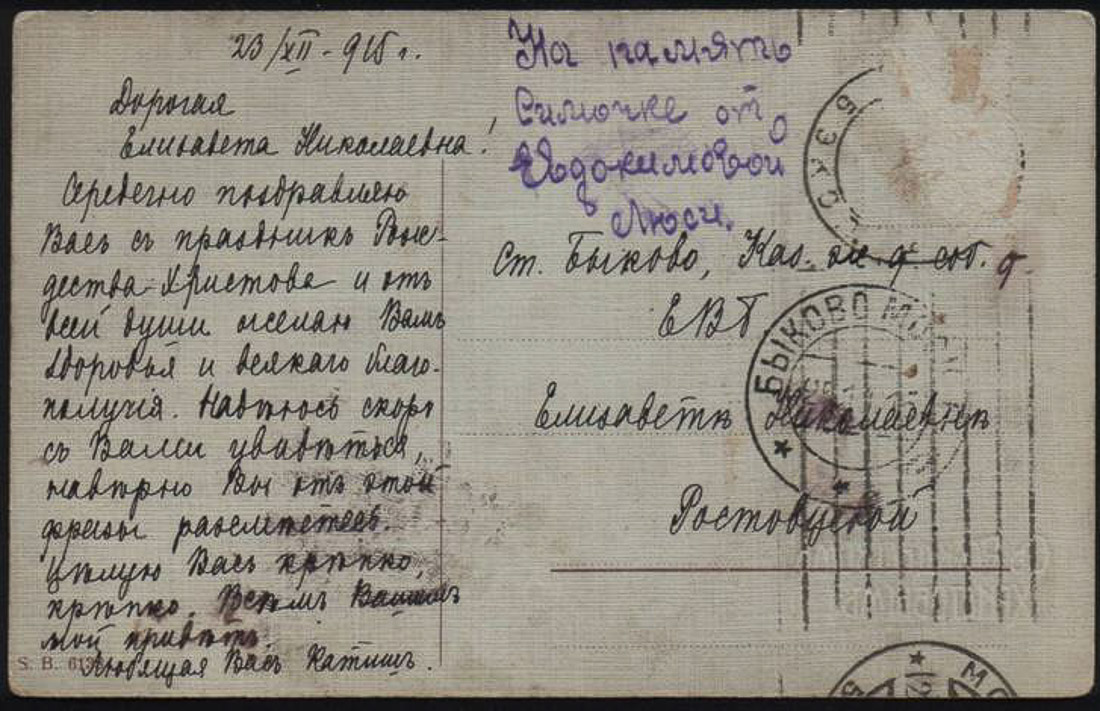 23/XII - 915 г.
Дорогая
Елизавета Николаевна!
Сердечно поздравляю
Васъ съ праздникъ Рож-
дества Христова и отъ
всей души желаю Вамъ
здоровья и всякаго благо-
получія. Надѣюсь скоро
съ Вами увидѣться,
навѣрно Вы отъ этой
фразы разсмѣетесь.
Цѣлую Васъ крѣпко,
крѣпко. Всѣмъ Вашимъ
мой привѣтъ.
Любящая Васъ Катишъ.
S. B.
На память
Симочке от
Евдокимовой
Люси.
Ст. Быково, Каз. ж. д. соб. д.
ЕВБ.
Елизаветѣ Николаевнѣ
Ростовцевой
БЫКОВО МОСК